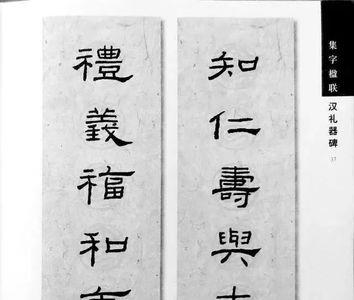 集字楹联 汉礼器碑
17
知仁壽與
禮義福和